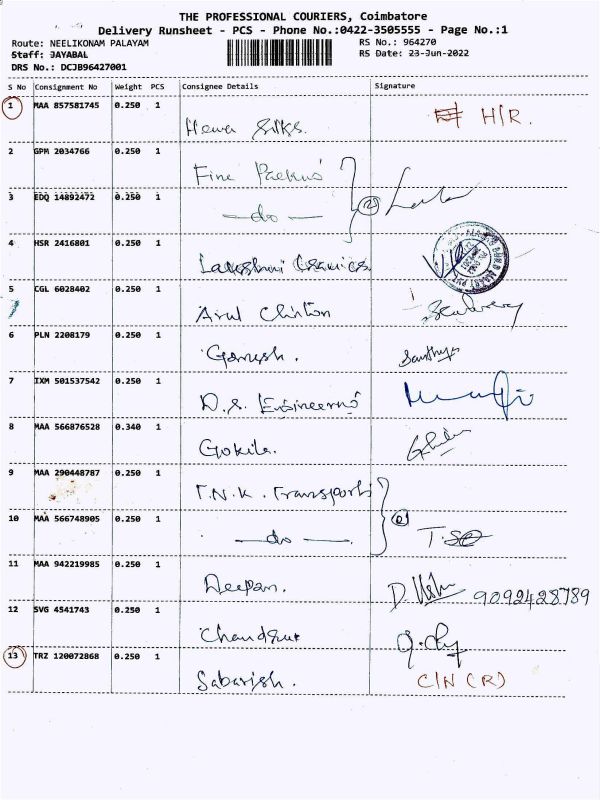 THE PROFESSIONAL COURIERS, Coimbatore
Delivery Runsheet - PCS - Phone No.:0422-3505555 - Page No.:1
Route: NEELIKONAM PALAYAM RS No.: 964270
Staff: JAYABAL RS Date: 23-Jun-2022
DRS No.: DCJB96427001
S No Consignment No Weight PCS Consignee Details Signature
1 MAA 857581745 0.250 1 H/R.
Silks.
2 GPM 2034766 0.250 1
Fine
3 EDQ 14892472 0.250 1 (2)
—do—
4 HSR 2416801 0.250 1
Lakshmi Ceramics
5 CGL 6028402 0.250 1
Arul Clinton
6 PLN 2208179 0.250 1
Ganesh. Santhiya
7 IXM 501537542 0.250 1
D.S. Engineers
8 MAA 566876528 0.340 1
Gokila.
9 MAA 290448787 0.250 1
T.N.K. Transports
10 MAA 566748905 0.250 1 (2)
—do—.
11 MAA 942219985 0.250 1
Deepan. 9092428789
12 SVG 4541743 0.250 1
13 TRZ 120072868 0.250 1
Sabarish. C/N (R)